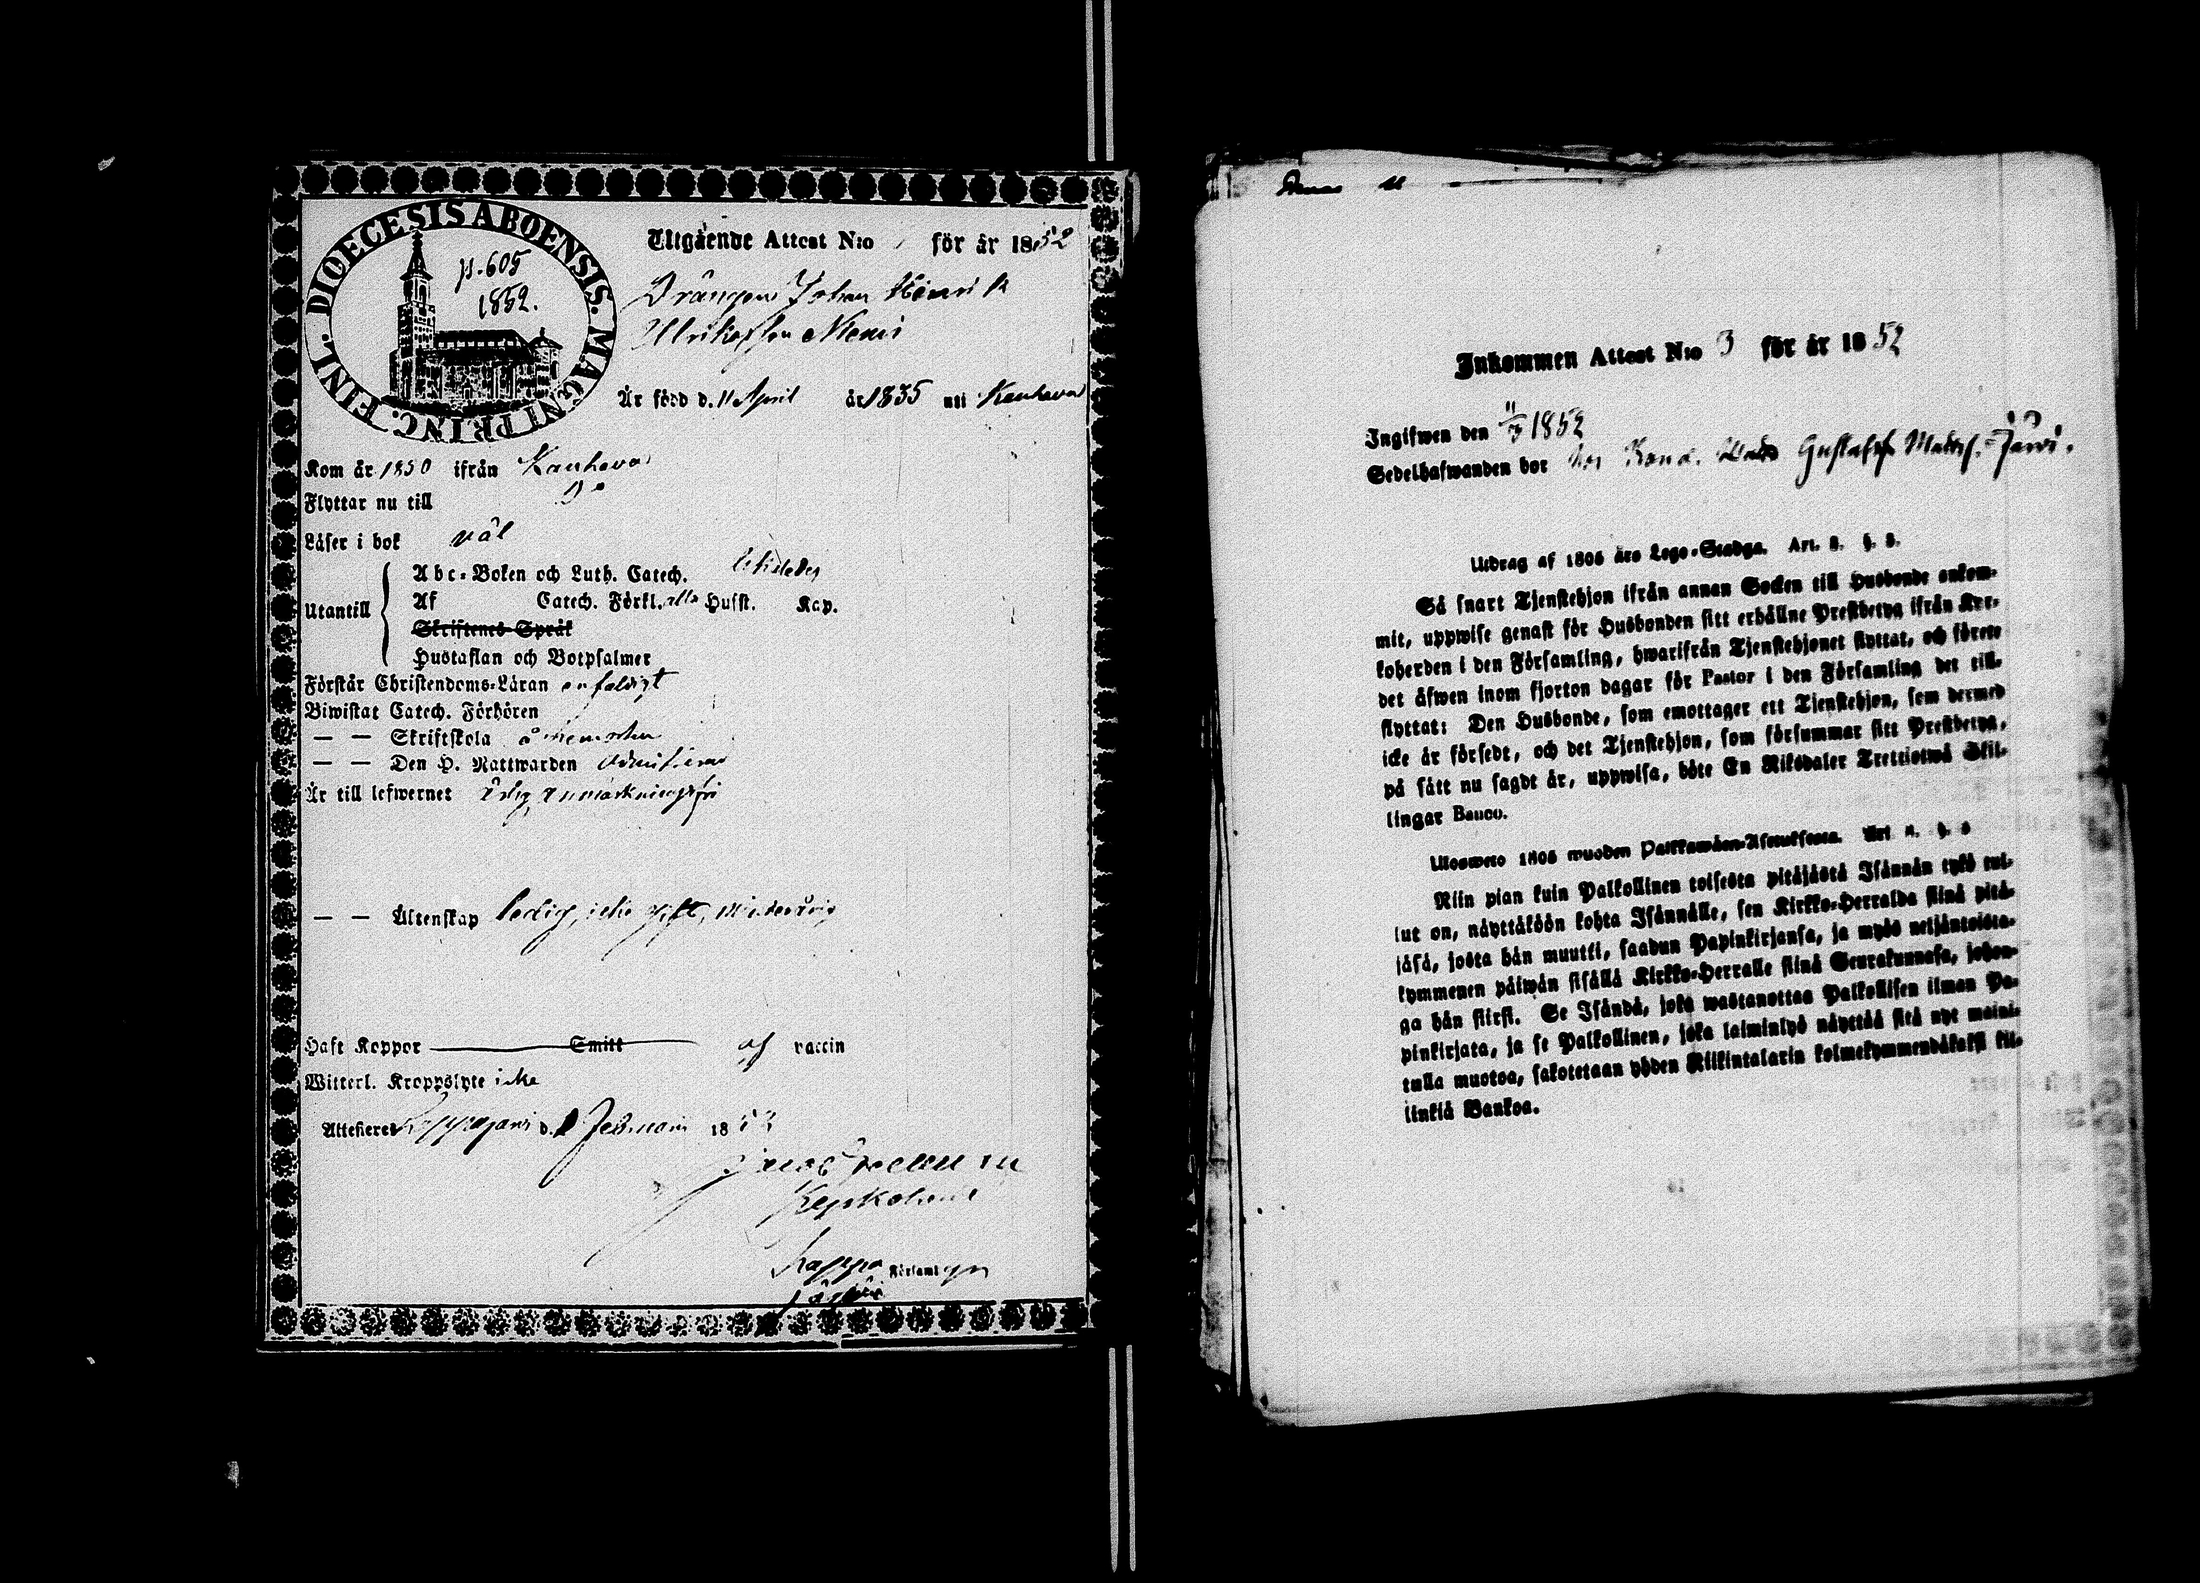 DIOECESIS ABOENSIS. MAGNI PRINC. FINL.
p. 605
1852.
Utgående Attest N:o för år 1852
Drängen Johan Henrik
Ulriksson Niemi
Är född d. 11 April år 1835 uti Kauhava
Kom år 1850 ifrån Kauhava
Flyttar nu till Do
Läser i bok väl
Utantill
Abc-Boken och Luth. Catech.
Af Catech. Förkl. alla Husst. Kap.
Skriftenes Språk
Hustaflan och Botpsalmer
Förstår Christendoms-Läran enfaldigt
Biwistat Catech. Förhören
— — Skriftskola
— — Den H. Nattwarden
Är till lefwernet ärlig, anmärkningsfri
— — Äktenskap ledig, icke gift, minderårig
Haft Koppor Smitt af vaccin
Witterl. Kroppslyte icke
Attesteras d. Februari 18
Kappo Församl
Inkommen Attest N:o 3 för år 1852
Ingifwen den 11/3 1852
Sedelhafwanden bor hos Bond. Gustaf Matts. Järvi.
Utdrag af 1805 års Lego-Stadga. Art. 2. §. 3.
Så snart Tjenstehjon ifrån annan Socken till Husbonde ankom-
mit, uppwise genast för Husbonden sitt erhållne Prestbetyg ifrån Kyr-
koherden i den Församling, hwarifrån Tjenstehjonet flyttat, och förete
det äfwen inom fjorton dagar för Pastor i den Församling det till-
flyttat: Den Husbonde, som emottager ett Tjenstehjon, som dermed
icke är försedt, och det Tjenstehjon, som försummar sitt Prestbetyg,
på sätt nu sagdt är, uppwisa, böte En Riksdaler Trettiotwå Skil-
lingar Banco.
Ulosweto 1805 wuoden Palkkawäen-Asetuksesta. Art. 2. §. 3
Niin pian kuin Palkollinen toisesta pitäjästä Isännän tykö tul-
lut on, näyttäköön kohta Isännälle, sen Kirkko-Herralda siinä pitä-
jäsä, josta hän muutti, saadun Papinkirjansa, ja myös neljäntoista-
kymmenen päiwän sisällä Kirkko-Herralle siinä Seurakunnasa, johon-
ga hän siirsi. Se Isändä, joka wastanottaa Palkollisen ilman Pa-
pinkirjata, ja se Palkollinen, joka laiminlyö näyttää sitä nyt maini-
tulla muotoa, sakotetaan yhden Riikintalarin kolmekymmendäkaksi kil-
linkiä Bankoa.